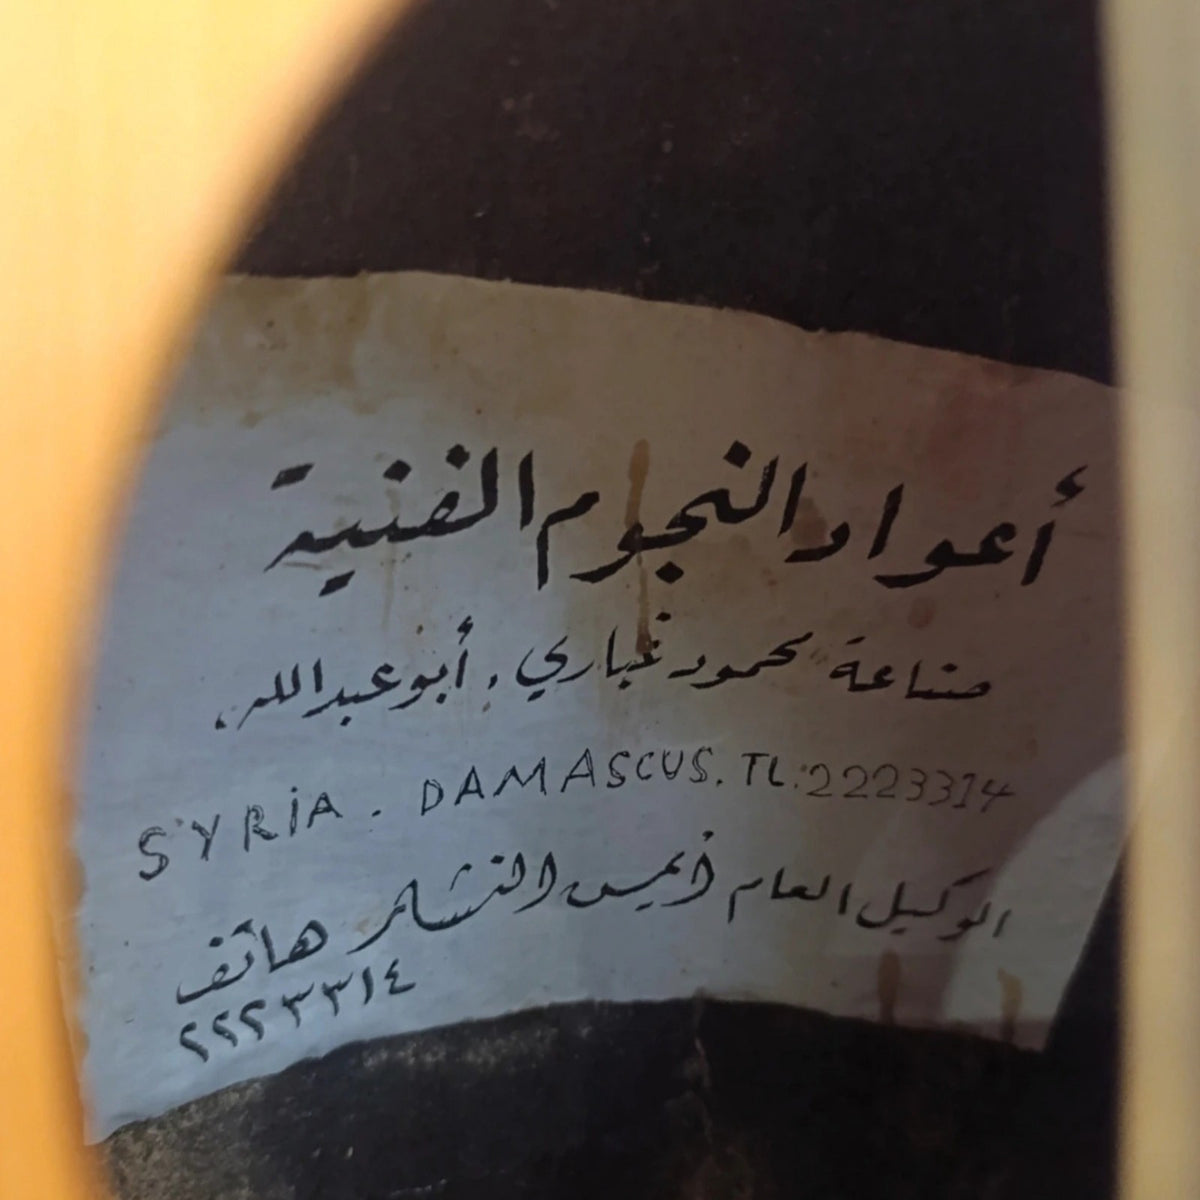 أعواد النجوم الفنية
صناعة محمود غباري. أبو عبد الله.
SYRiA. DAMASCUS. TL: 2223314
الوكيل العام أيمن هاتف
٢٢٢٣٣١٤